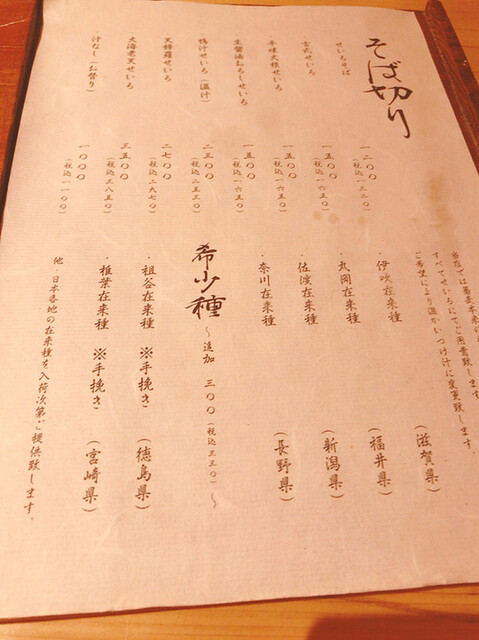 そば切り
せいろそば 一二〇〇(税込一三二〇)
古式せいろ 一五〇〇(税込一六五〇)
辛味大根せいろ 一五〇〇(税込一六五〇)
生醤油おろしせいろ 一五〇〇(税込一六五〇)
鴨汁せいろ(温汁) 二三〇〇(税込二五三〇)
天麩羅せいろ 二七〇〇(税込二九七〇)
大海老天せいろ 三五〇〇(税込三八五〇)
汁なし(お替り) 一〇〇〇(税込一一〇〇)
当店では蕎麦本来の
すべてせいろにてご用意致します。
ご希望により温かいつけ汁に変更致します。
・伊吹在来種 (滋賀県)
・丸岡在来種 (福井県)
・佐渡在来種 (新潟県)
・奈川在来種 (長野県)
希少種 〜追加 三〇〇(税込三三〇)〜
・祖谷在来種 ※手挽き (徳島県)
・椎葉在来種 ※手挽き (宮崎県)
他、日本各地の在来種を入荷次第ご提供致します。